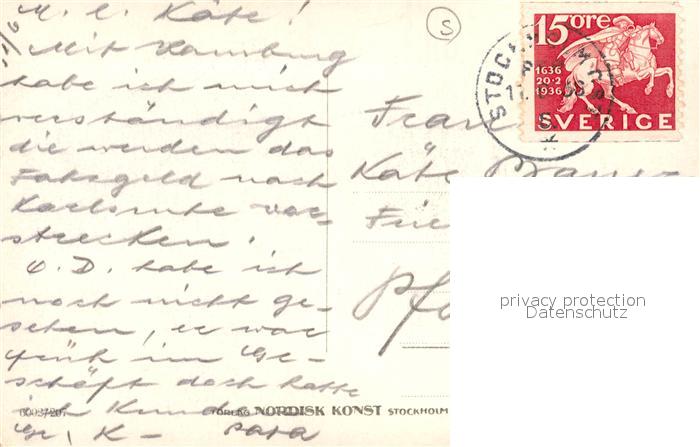 M. l. Käte!
Mit Hamburg
habe ich mich
verständigt
die werden das
Fahrgeld nach
Karlsruhe vor-
strecken.
O. D. habe ich
noch nicht ge-
sehen, er war
früh im Ge-
schäft doch hatte
ich Kunden
Gr. K- Papa
S
15 ÖRE
1636
20·2
1936
SVERIGE
STOCKHOLM
Frau
Käte
Pf
privacy protection
Datenschutz
FÖRLAG NORDISK KONST STOCKHOLM